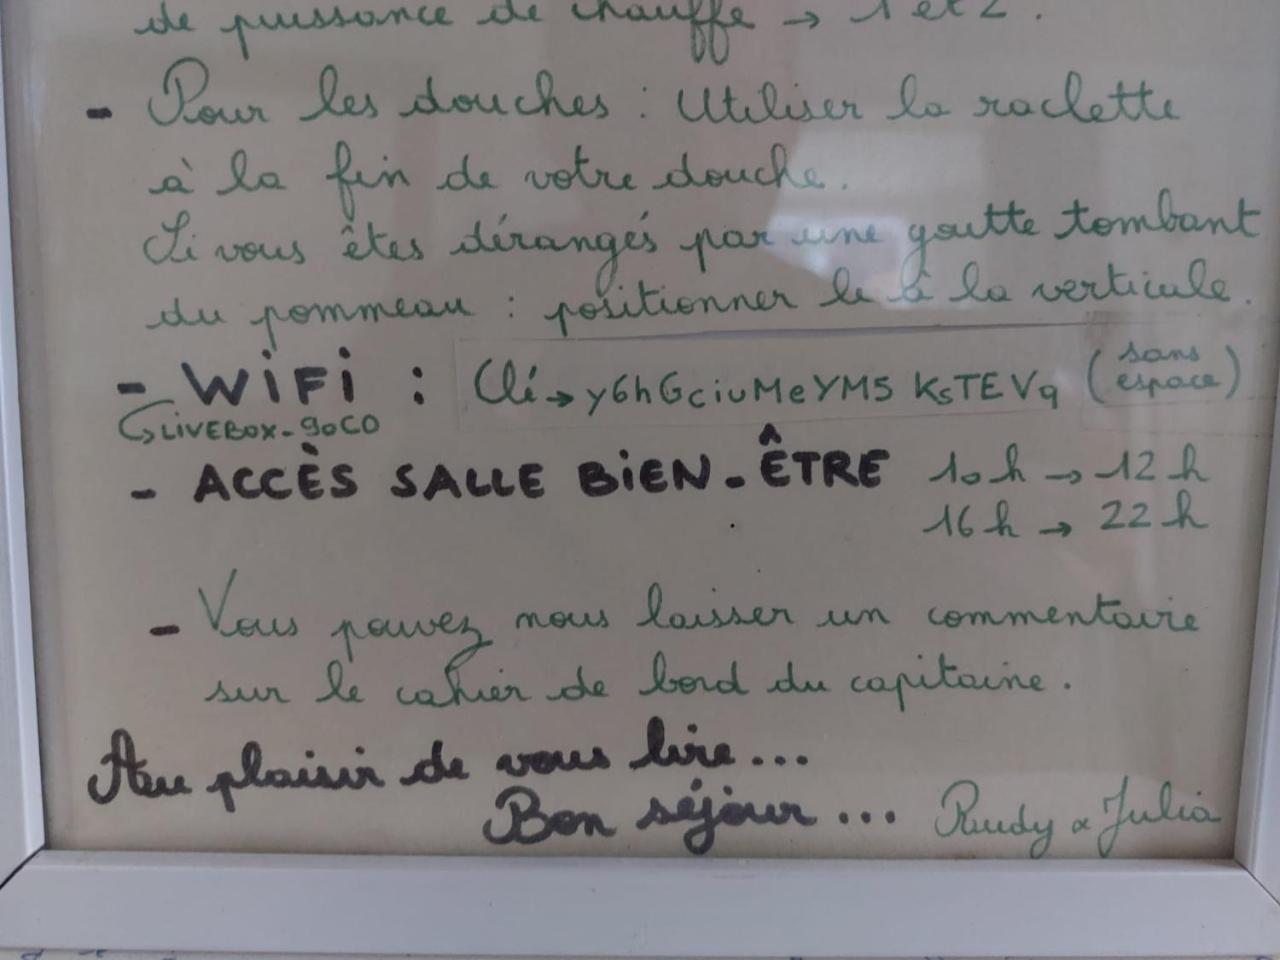 de puissance de chauffe → 1 et 2.
- Pour les douches : Utiliser la raclette
à la fin de votre douche.
Si vous êtes dérangés par une goutte tombant
du pommeau : positionner le à la verticale.
- WiFi : Clé → y6hGciuMeYM5 KsTEVq (sans espace)
↳ LiVEBOX-90C0
- ACCÈS SALLE BiEN-ÊTRE 10h → 12h
16h → 22h
- Vous pouvez nous laisser un commentaire
sur le cahier de bord du capitaine.
Au plaisir de vous lire...
Bon séjour... Rudy & Julia